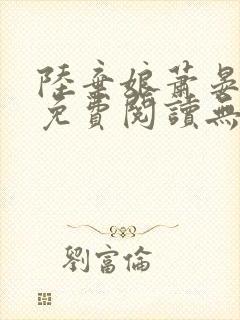 陸棄娘蕭晏
免費閱讀無
劉富倫